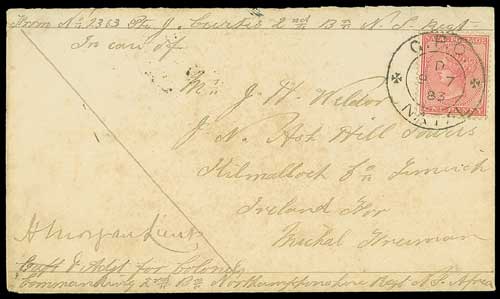 From No 1363 Pte J. Curtis 2nd Bn N. L. Regt
In care of
Mr J. H. Weldon
J. N. Ash Hill Towers
Kilmallock Co Limerick
Ireland For
Michal Freeman
G.P.O
D
7
83
NATAL
Capt & Adjt for Colonel
Commanding 2nd Bn Northamptonshire Regt S. Africa